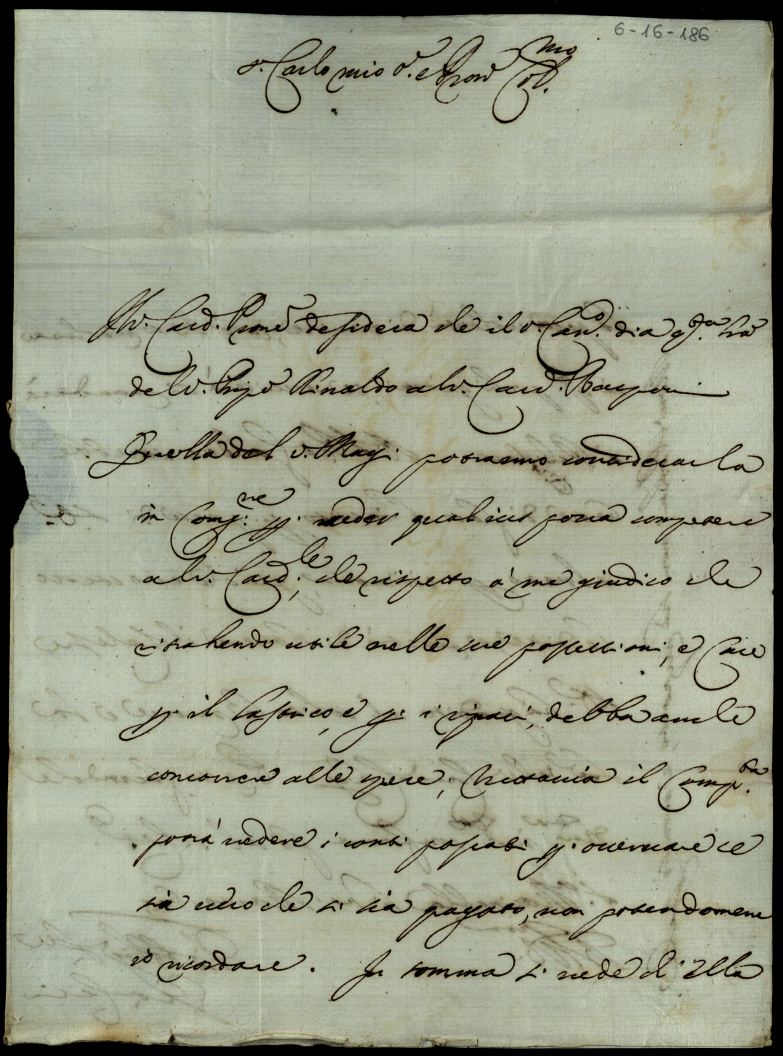 6-16-186
S.r Carlo mio S.r e Pron Col.mo
Il S.r Card. desidera che il S.r Can.o dia q.sta
del S.r Rinaldo al S.r Card. Rasponi
Quella del S.r Magi potranno considerarla
in Cong.ne p. veder qual ius possa competere
al S.r Card.le, che rispetto à me giudico che
ritrahendo utile nelle sue possessioni, e Case
p. il lastrico, e p. i ripari, debba anche
concorrere alle spese; tuttavia il Comp.
potrà vedere i conti passati p. osservare se
sia vero che si sia pagato, non potendomene
io ricordare. In somma si vede ch'Ella